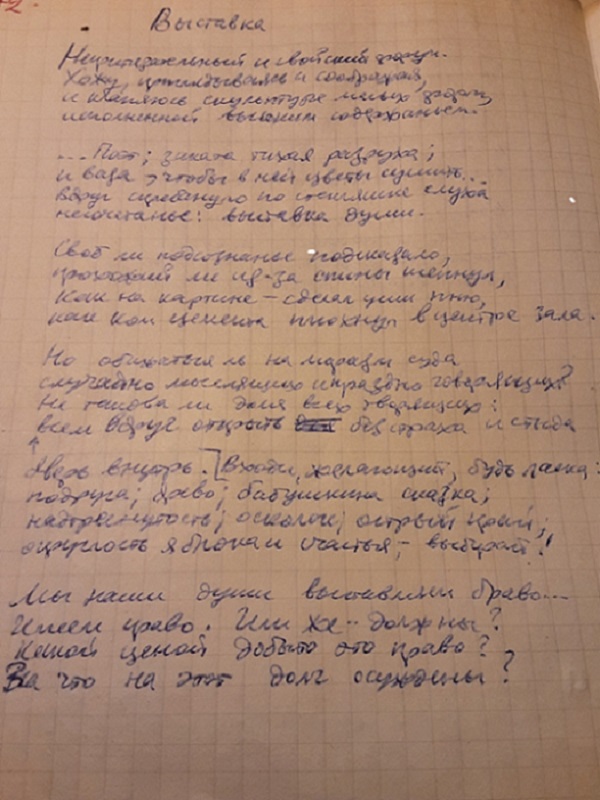 Выставка
Непритязательный и свойский
Хожу, прикидываясь и соображая,
и кланяюсь скульптуре малых форм,
исполненной высоким содержаньем.
... Поэт; заката тихая разруха;
и ваза, чтобы в ней цветы сушить...
Вдруг скребнуло по слуха
несчетанье: выставка души.
Своё ли подсознанье подсказало,
прохожий ли из-за спины шепнул,
Как на картине – сделал уши ню,
как ком цемента плюхнул в центре зала.
Но обижаться ль на маразм суда
случайно мыслящих и праздно говорящих?
Не такова ли доля всех творящих:
всем вдруг открыть без страха и стыда
дверь внутрь. [Входи, желающий, будь ласка:
подруга; древо; бабушкина сказка;
надтреснутость; осколок; острый край;
округлость яблока и счастья, – выбирай!
Мы наши души выставили браво...
Имеем право. Или же – должны?
Какой ценой добыто это право?
За что на этот долг осуждены?